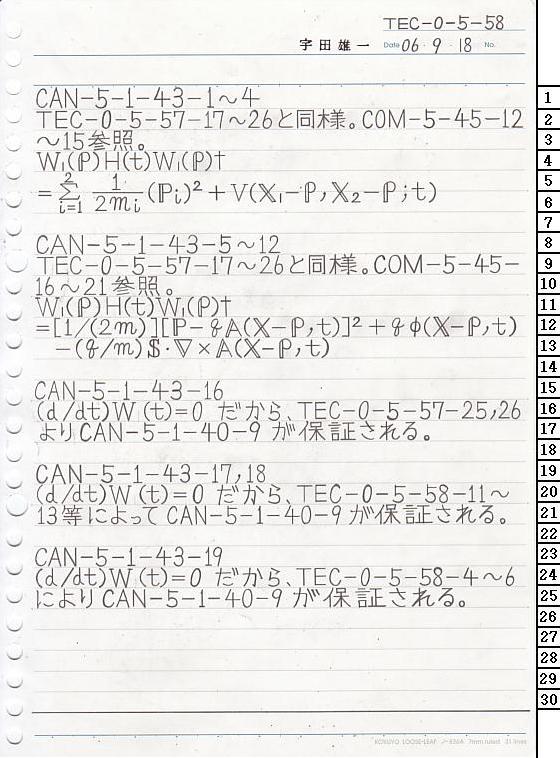 TEC-0-5-58
宇田雄一 Date 06・9・18 No.
CAN-5-1-43-1～4
TEC-0-5-57-17～26と同様。COM-5-45-12
～15参照。
W₁(ℙ)H(t)W₁(ℙ)†
=Σ²ᵢ₌₁ 1/2mᵢ (ℙᵢ)²+V(𝕏₁-ℙ,𝕏₂-ℙ;t)
CAN-5-1-43-5～12
TEC-0-5-57-17～26と同様。COM-5-45-
16～21参照。
W₁(ℙ)H(t)W₁(ℙ)†
=[1/(2m)][ℙ-q𝔸(𝕏-ℙ,t)]²+qφ(𝕏-ℙ,t)
-(q/m)𝕊·∇×𝔸(𝕏-ℙ,t)
CAN-5-1-43-16
(d/dt)W(t)=0 だから、TEC-0-5-57-25,26
よりCAN-5-1-40-9 が保証される。
CAN-5-1-43-17,18
(d/dt)W(t)=0 だから、TEC-0-5-58-11～
13等によって CAN-5-1-40-9 が保証される。
CAN-5-1-43-19
(d/dt)W(t)=0 だから、TEC-0-5-58-4～6
により CAN-5-1-40-9 が保証される。
KOKUYO LOOSE-LEAF ノ-836A 7mm ruled 31 lines
1
2
3
4
5
6
7
8
9
10
11
12
13
14
15
16
17
18
19
20
21
22
23
24
25
26
27
28
29
30